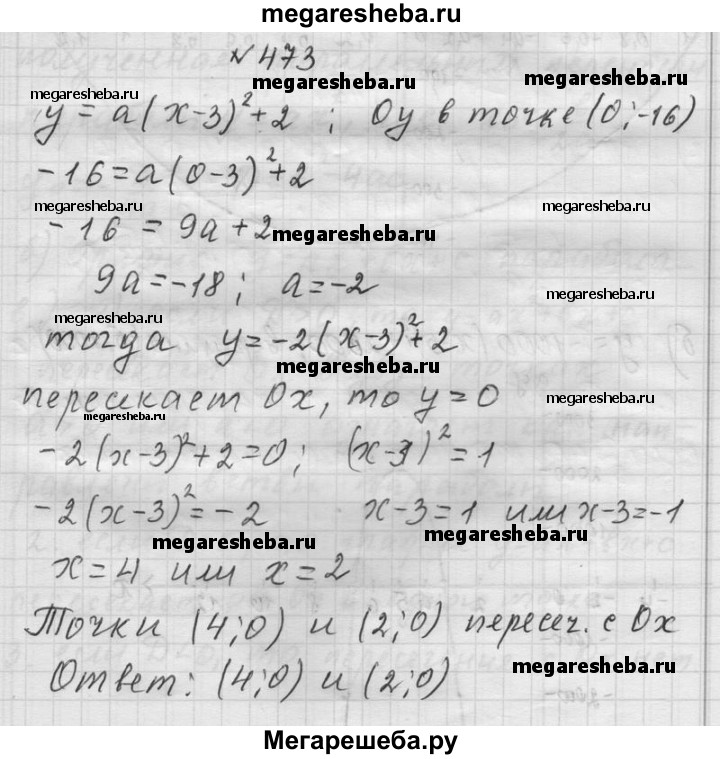 megaresheba.ru
№473
megaresheba.ru megaresheba.ru megaresheba.ru
y = a(x-3)²+2 ; Oy в точке (0;-16)
-16=a(0-3)²+2
megaresheba.ru megaresheba.ru
-16 = 9a+2
megaresheba.ru
9a=-18; a=-2
megaresheba.ru
megaresheba.ru
тогда y=-2(x-3)²+2
megaresheba.ru
пересекает Ox, то y=0
megaresheba.ru
-2(x-3)²+2=0; (x-3)²=1
-2(x-3)²=-2 x-3=1 или x-3=-1
megaresheba.ru megaresheba.ru
x=4 или x=2
Точки (4;0) и (2;0) пересеч. с Ox
megaresheba.ru
Ответ: (4;0) и (2;0)
Мегарешеба.ру